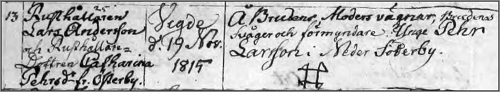 13 Rusthållaren
Lars Andersson
och Rusthållare
dottren Catharina
Pehrsd. fr. Österby.
Vigde
d. 19 Nov.
1815
Å Brudens Moders vägnar, Brudens
Svåger och förmyndare Unge Pehr
Larsson i Neder Söderby.